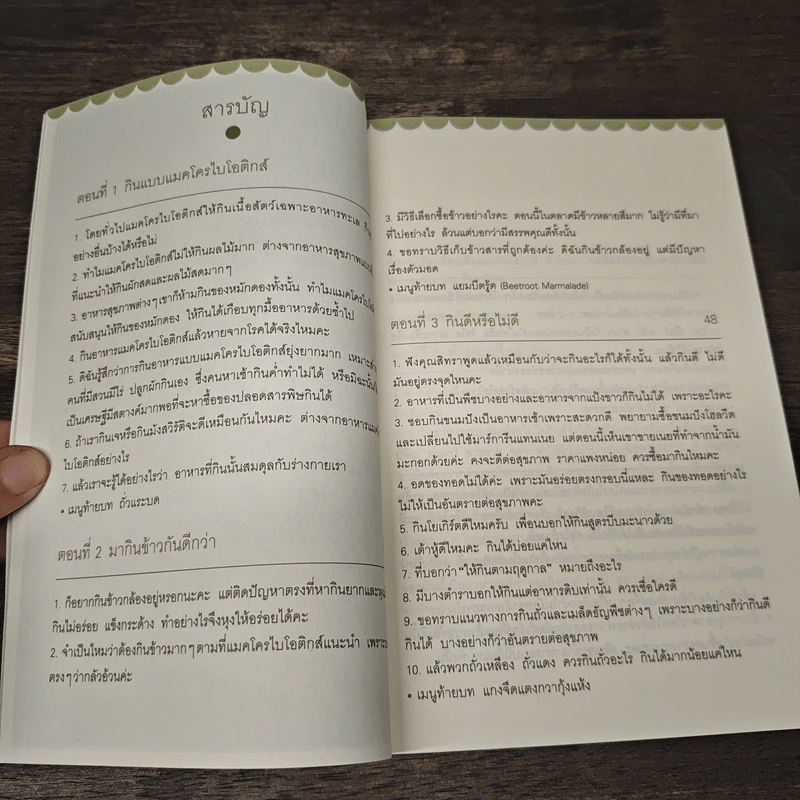 สารบัญ
ตอนที่ 1 กินแบบแมคโครไบโอติกส์
1. โดยทั่วไปแมคโครไบโอติกส์ให้กินเนื้อสัตว์เฉพาะอาหารทะเล
อย่างอื่นบ้างได้หรือไม่
2. ทำไมแมคโครไบโอติกส์ไม่ให้กินผลไม้มาก ต่างจากอาหารสุขภาพแบบอื่น
ที่แนะนำให้กินผักสดและผลไม้สดมากๆ
3. อาหารสุขภาพต่างๆ เขาก็ห้ามกินของหมักดองทั้งนั้น ทำไมแมคโครไบโอ
สนับสนุนให้กินของหมักดอง ให้กินได้เกือบทุกมื้ออาหารด้วยซ้ำไป
4. กินอาหารแมคโครไบโอติกส์แล้วหายจากโรคได้จริงไหมคะ
5. ดิฉันรู้สึกว่าการกินอาหารแบบแมคโครไบโอติกส์ยุ่งยากมาก เหมาะสำ
คนที่มีสวนมีไร่ ปลูกผักกินเอง ซึ่งคนหาเช้ากินค่ำทำไม่ได้ หรือมิฉะนั้น
เป็นเศรษฐีมีสตางค์มากพอที่จะหาซื้อของปลอดสารพิษกินได้
6. ถ้าเรากินเจหรือกินมังสวิรัติจะดีเหมือนกันไหมคะ ต่างจากอาหารแมค
ไบโอติกส์อย่างไร
7. แล้วเราจะรู้ได้อย่างไรว่า อาหารที่กินนั้นสมดุลกับร่างกายเรา
• เมนูท้ายบท ถั่วแระบด
ตอนที่ 2 มากินข้าวกันดีกว่า
1. ก็อยากกินข้าวกล้องอยู่หรอกนะคะ แต่ติดปัญหาตรงที่หากินยากและหุง
กินไม่อร่อย แข็งกระด้าง ทำอย่างไรจึงหุงให้อร่อยได้คะ
2. จำเป็นไหมว่าต้องกินข้าวมากๆ ตามที่แมคโครไบโอติกส์แนะนำ เพราะ
ตรงๆ ว่ากลัวอ้วนค่ะ
3. มีวิธีเลือกซื้อข้าวอย่างไรคะ ตอนนี้ในตลาดมีข้าวหลายสีมาก ไม่รู้ว่ามีที่มา
ที่ไปอย่างไร ล้วนแต่บอกว่ามีสรรพคุณดีทั้งนั้น
4. ขอทราบวิธีเก็บข้าวสารที่ถูกต้องค่ะ ดิฉันกินข้าวกล้องอยู่ แต่มีปัญหา
เรื่องตัวมอด
• เมนูท้ายบท แยมบีตรู้ต (Beetroot Marmalade)
ตอนที่ 3 กินดีหรือไม่ดี 48
1. ฟังคุณสิทราพูดแล้วเหมือนกับว่าจะกินอะไรก็ได้ทั้งนั้น แล้วกินดี ไม่ดี
มันอยู่ตรงจุดไหนคะ
2. อาหารที่เป็นพืชบางอย่างและอาหารจากแป้งขาวก็กินไม่ได้ เพราะอะไรคะ
3. ชอบกินขนมปังเป็นอาหารเช้าเพราะสะดวกดี พยายามซื้อขนมปังโฮลวีต
และเปลี่ยนไปใช้มาร์การีนแทนเนย แต่ตอนนี้เห็นเขาขายเนยที่ทำจากน้ำมัน
มะกอกด้วยค่ะ คงจะดีต่อสุขภาพ ราคาแพงหน่อย ควรซื้อมากินไหมคะ
4. อดของทอดไม่ได้ค่ะ เพราะมันอร่อยตรงกรอบนี่แหละ กินของทอดอย่างไร
ไม่ให้เป็นอันตรายต่อสุขภาพคะ
5. กินโยเกิร์ตดีไหมครับ เพื่อนบอกให้กินสูตรบีบมะนาวด้วย
6. เต้าหู้ดีไหมคะ กินได้บ่อยแค่ไหน
7. ที่บอกว่า "ให้กินตามฤดูกาล" หมายถึงอะไร
8. มีบางตำราบอกให้กินแต่อาหารดิบเท่านั้น ควรเชื่อใครดี
9. ขอทราบแนวทางการกินถั่วและเมล็ดธัญพืชต่างๆ เพราะบางอย่างก็ว่ากินดี
กินได้ บางอย่างก็ว่าอันตรายต่อสุขภาพ
10. แล้วพวกถั่วเหลือง ถั่วแดง ควรกินถั่วอะไร กินได้มากน้อยแค่ไหน
• เมนูท้ายบท แกงจืดแตงกวากุ้งแห้ง